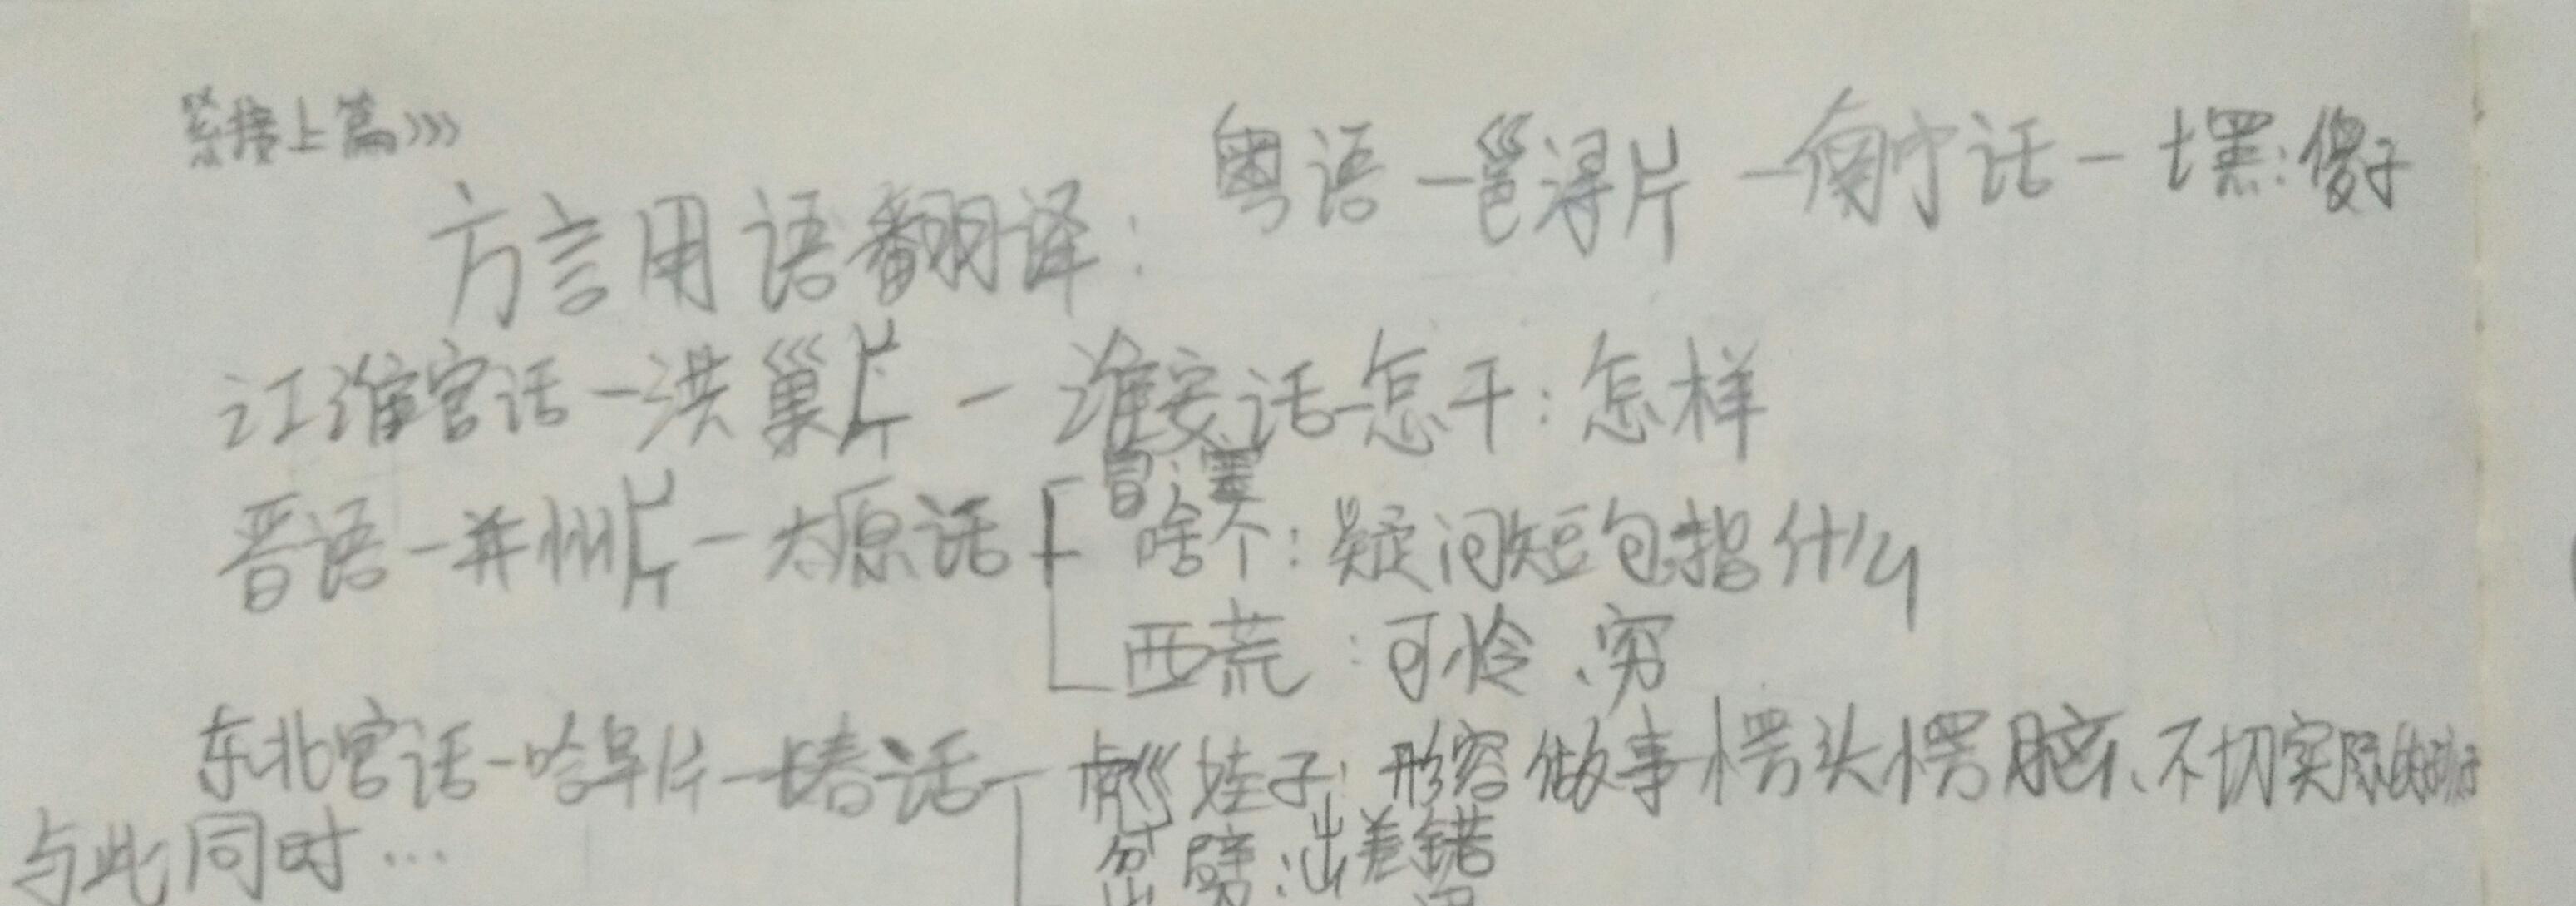 紧接上篇>>>
粤语-邕浔片-南宁话-土墨:傻子
方言用语翻译:
江淮官话-洪巢片-淮安话-怎干:怎样
晋语-并州片-太原话
啥个:疑问短句指什么
西荒:可怜、穷
东北官话-哈阜片-长春话
娃子:形容做事愣头愣脑、不切实际的
劈:出差错
与此同时…